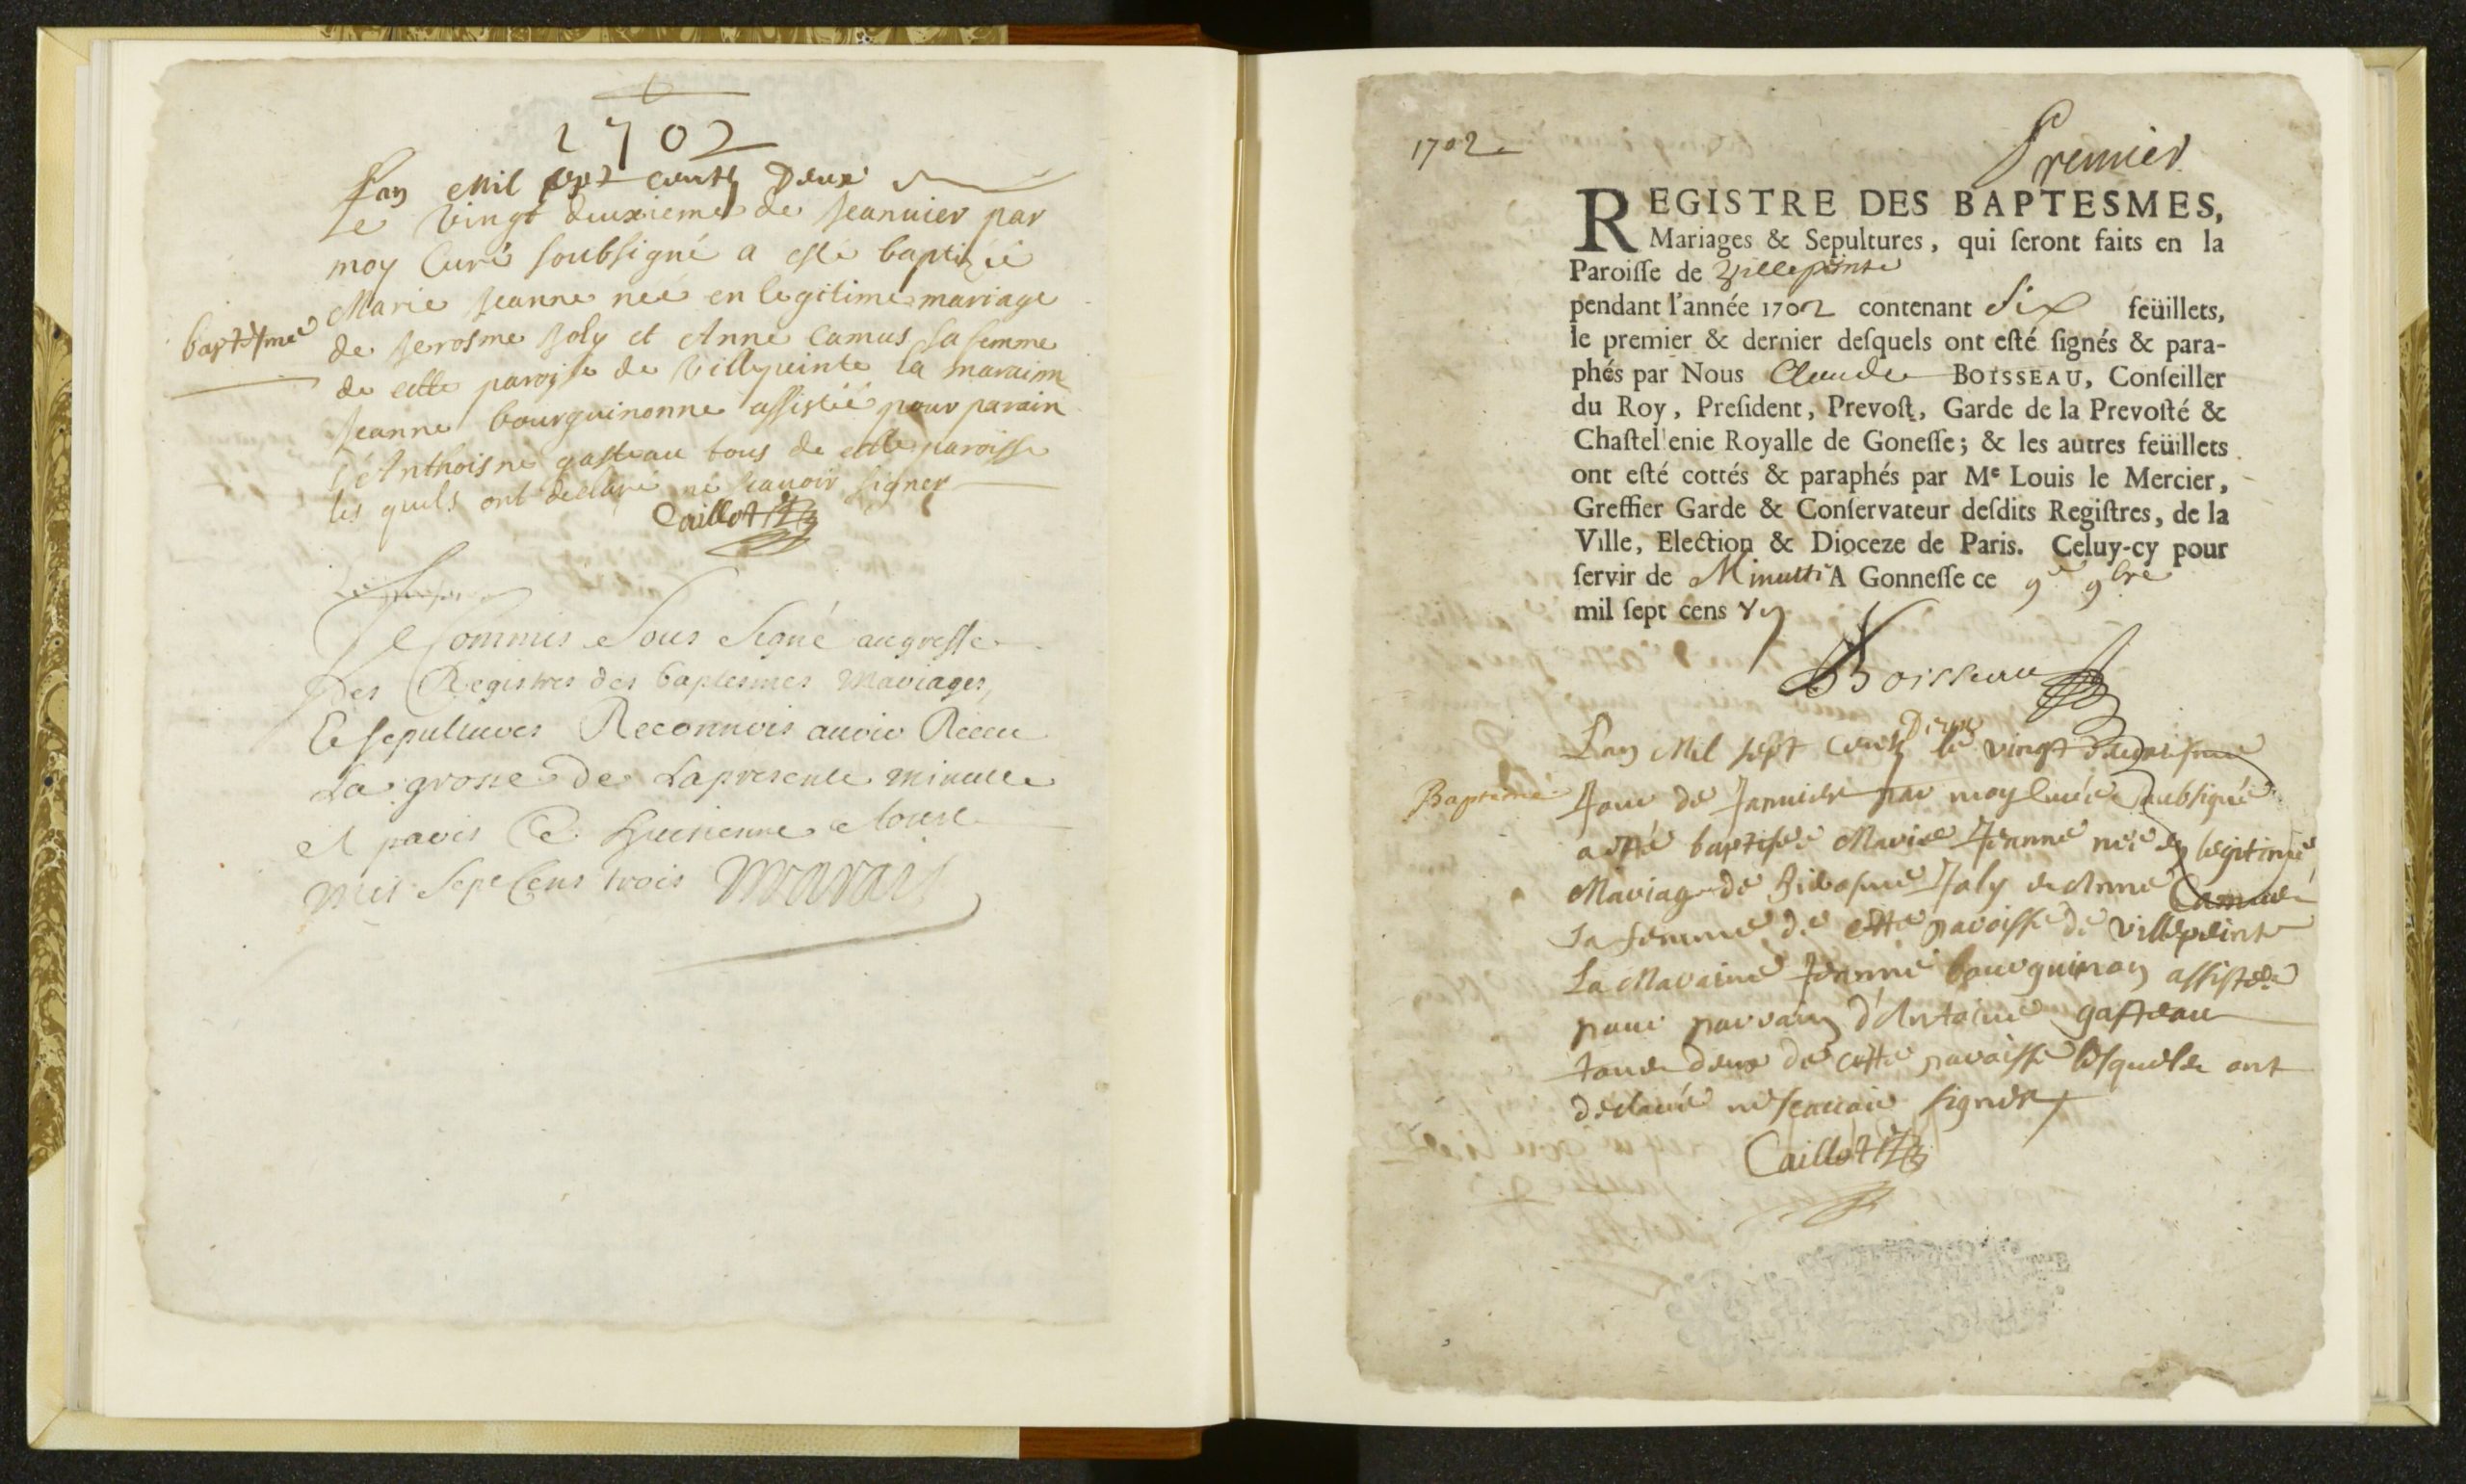 1702
Lan Mil sept cents Deux
Le vingt deuxieme de Jeanuier par
moy Curé soubsigné a esté baptizéé
Marie Jeanne neé en legitime mariage
baptesme
de Jerosme Joly et Anne Camus sa femme
de cette paroisse de Villepeinte la maraine
Jeanne bourguinonne assistéé pour parain
d'Anthoisne gasteau tous de cette paroisse
les quels ont declaré ne scauoir signer
Caillot
Le Commis Sous Signé au greffe
Des Registres des baptesmes Mariages,
Et sepultures Reconnois auoir Receu
La grosse de Lapresente minutte
A paris Ce
Mil Sept Cens trois Marais
1702
Premier
REGISTRE DES BAPTESMES,
Mariages & Sepultures, qui ſeront faits en la
Paroiſſe de Villepinte
pendant l'année 1702 contenant Six feüillets,
le premier & dernier deſquels ont eſté ſignés & para-
phés par Nous Claude BOISSEAU, Conſeiller
du Roy, Preſident, Prevoſt, Garde de la Prevoſté &
Chaſtellenie Royalle de Goneſſe; & les autres feüillets
ont eſté cottés & paraphés par Me Louis le Mercier,
Greffier Garde & Conſervateur deſdits Regiſtres, de la
Ville, Election & Dioceze de Paris. Celuy-cy pour
ſervir de Minutte A Gonneſſe ce 9e 9bre
mil ſept cens
Boisseau
Lan Mil sept cents Deux le vingt deuxiesme
Baptesme
Jour de Januier par moy Curé soubsigné
a esté baptisée Marie Jeanne née en legitime
Mariage de Jerosme Joly et Anne Camus
sa femme de cette paroisse de villepeinte
La Maraine Jeanne bourguinon assistée
pour parrain d'Antoine gasteau
tous deux de cette paroisse lesquels ont
declaré ne scauoir signer
Caillot